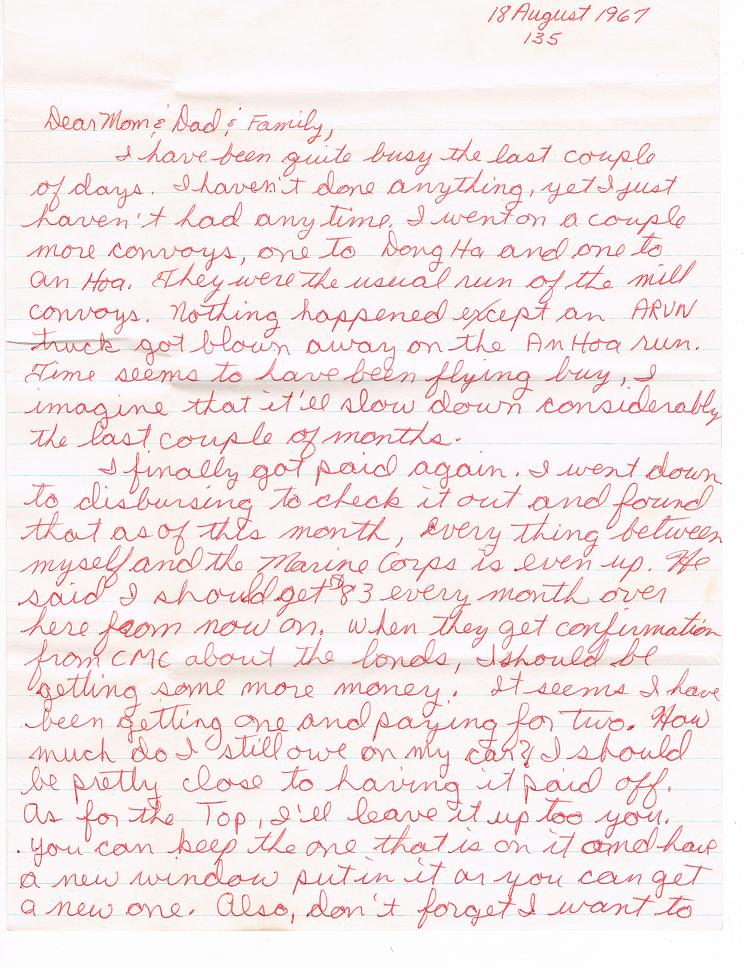 18 August 1967
135
Dear Mom & Dad & Family,
I have been quite busy the last couple
of days. I haven't done anything, yet I just
haven't had any time. I went on a couple
more convoys, one to Dong Ha and one to
an Hoa. They were the usual run of the mill
convoys. Nothing happened except an ARVN
truck got blown away on the An Hoa run.
Time seems to have been flying buy, I
imagine that it'll slow down considerably
the last couple of months.
I finally got paid again. I went down
to disbursing to check it out and found
that as of this month, every thing between
myself and the Marine Corps is even up. He
said I should get $83 every month over
here from now on. When they get confirmation
from CMC about the bonds, I should be
getting some more money. It seems I have
been getting one and paying for two. How
much do I still owe on my car? I should
be pretty close to having it paid off.
As for the Top, I'll leave it up too you.
You can keep the one that is on it and have
a new window put in it or you can get
a new one. Also, don't forget I want to